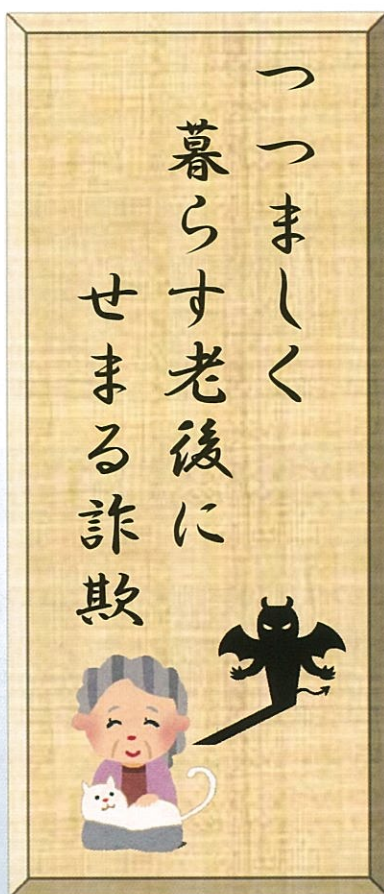 つつましく
暮らす老後に
せまる詐欺